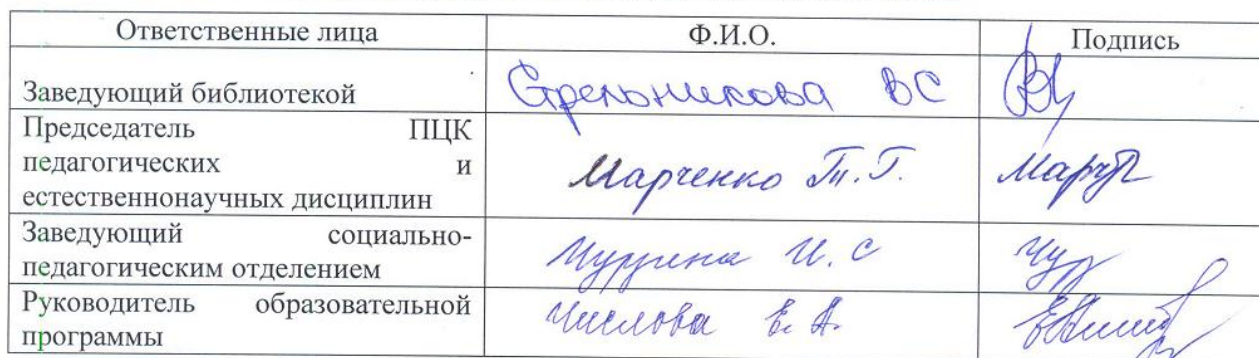 Ответственные лица Ф.И.О. Подпись
Заведующий библиотекой Стрельникова ВС
Председатель ПЦК
педагогических и
естественнонаучных дисциплин Марченко Т.Г.
Заведующий социально-
педагогическим отделением И.С
Руководитель образовательной
программы Числова Е.А.